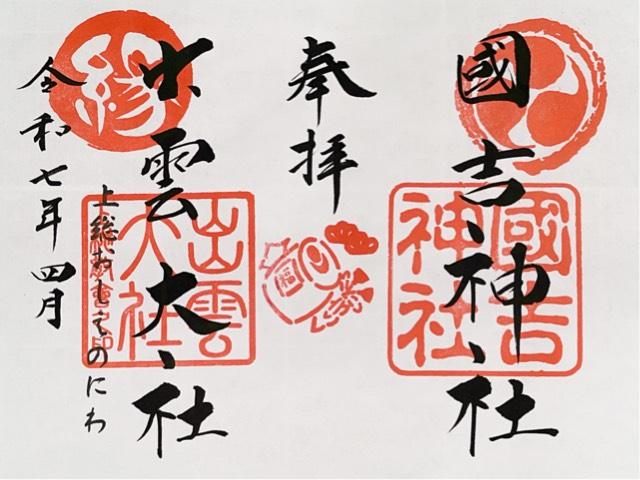 國吉神社
國吉神社
奉拝
福
出雲大社
縁
出雲大社
上総
のにわ
令和七年四月